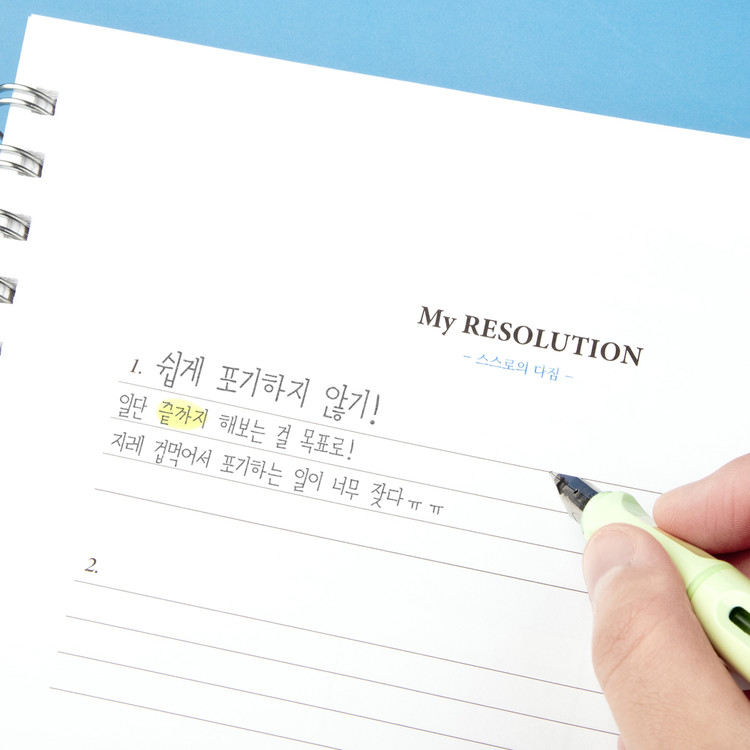 My RESOLUTION
- 스스로의 다짐 -
1. 쉽게 포기하지 않기!
일단 끝까지 해보는 걸 목표로!
지레 겁먹어서 포기하는 일이 너무 잦다ㅠㅠ
2.